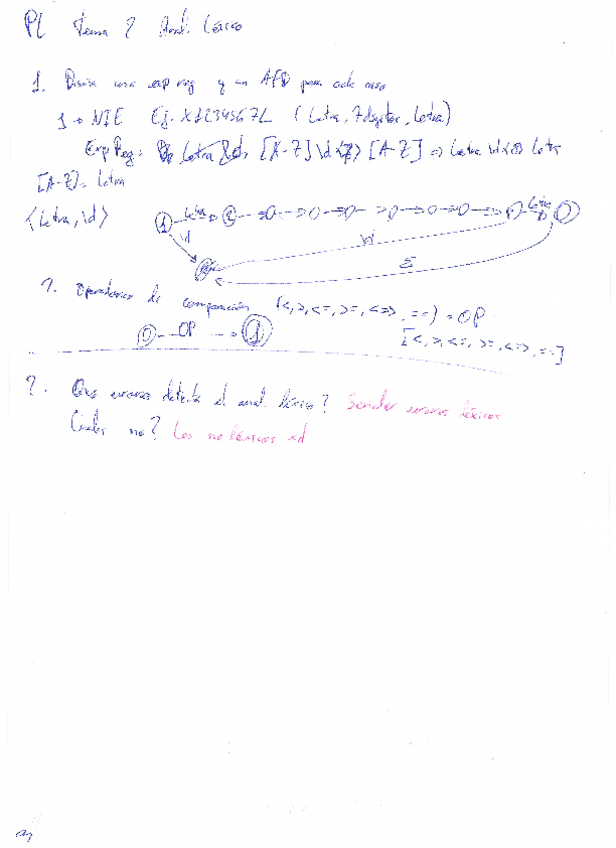 PL Tema 2 Anal. Léxico
1. Diseña una exp reg y un AFD para cada caso
1 → NIE Ej. X1234567L (Letra, 7 dígitos, Letra)
Exp Reg: [X-Z]\d<7>[A-Z] => Letra \d<7> Letra
[A-Z] = Letra
<Letra, \d>
1 Letra
\d \d Letra
Σ
2. Operadores de comparación (<, >, <=, >=, <=>, ==) = OP
0 OP 1
[<, >, <=, >=, <=>, ==]
2. Que errores detecta el anal. léxico? Señalar errores léxicos
Cuales no? Los no léxicos xd